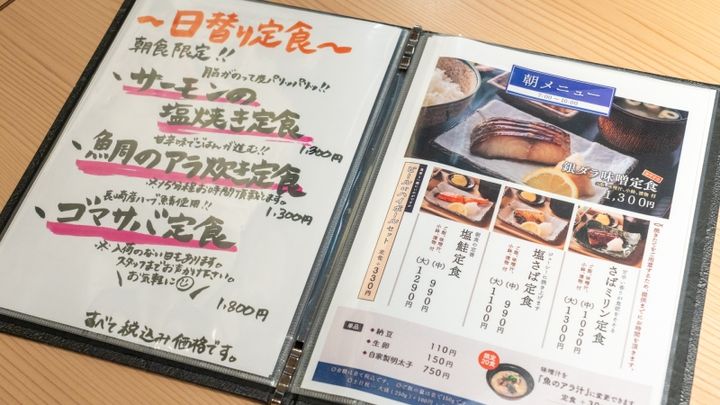 〜日替り定食〜
朝食限定!!
脂がのって皮パリッパリッ!!
サーモンの
塩焼き定食
1,300円
甘辛味でごはんが進む!!
魚のアラ炊き定食
※15分程お時間頂戴します。
1,300円
長崎産ハーブ鯖使用!!
ゴマサバ定食
※入荷のない日もあります。
スタッフまでお声がけ下さい。
お気軽に
1,800円
すべて税込み価格です。
朝メニュー
7:00~10:00
銀ダラ味噌定食
1,300円
セット
定食+330円
塩鮭定食
ご飯、味噌汁、小鉢、漬物 付
(中) 990円
(大) 1290円
塩さば定食
ご飯、味噌汁、小鉢、漬物 付
(中) 990円
(大) 1100円
さばミリン定食
(中) 1050円
(大) 1300円
単品
納豆 110円
生卵 150円
自家製明太子 750円
限定
20食
味噌汁を
「魚のアラ汁」に変更できます
定食+